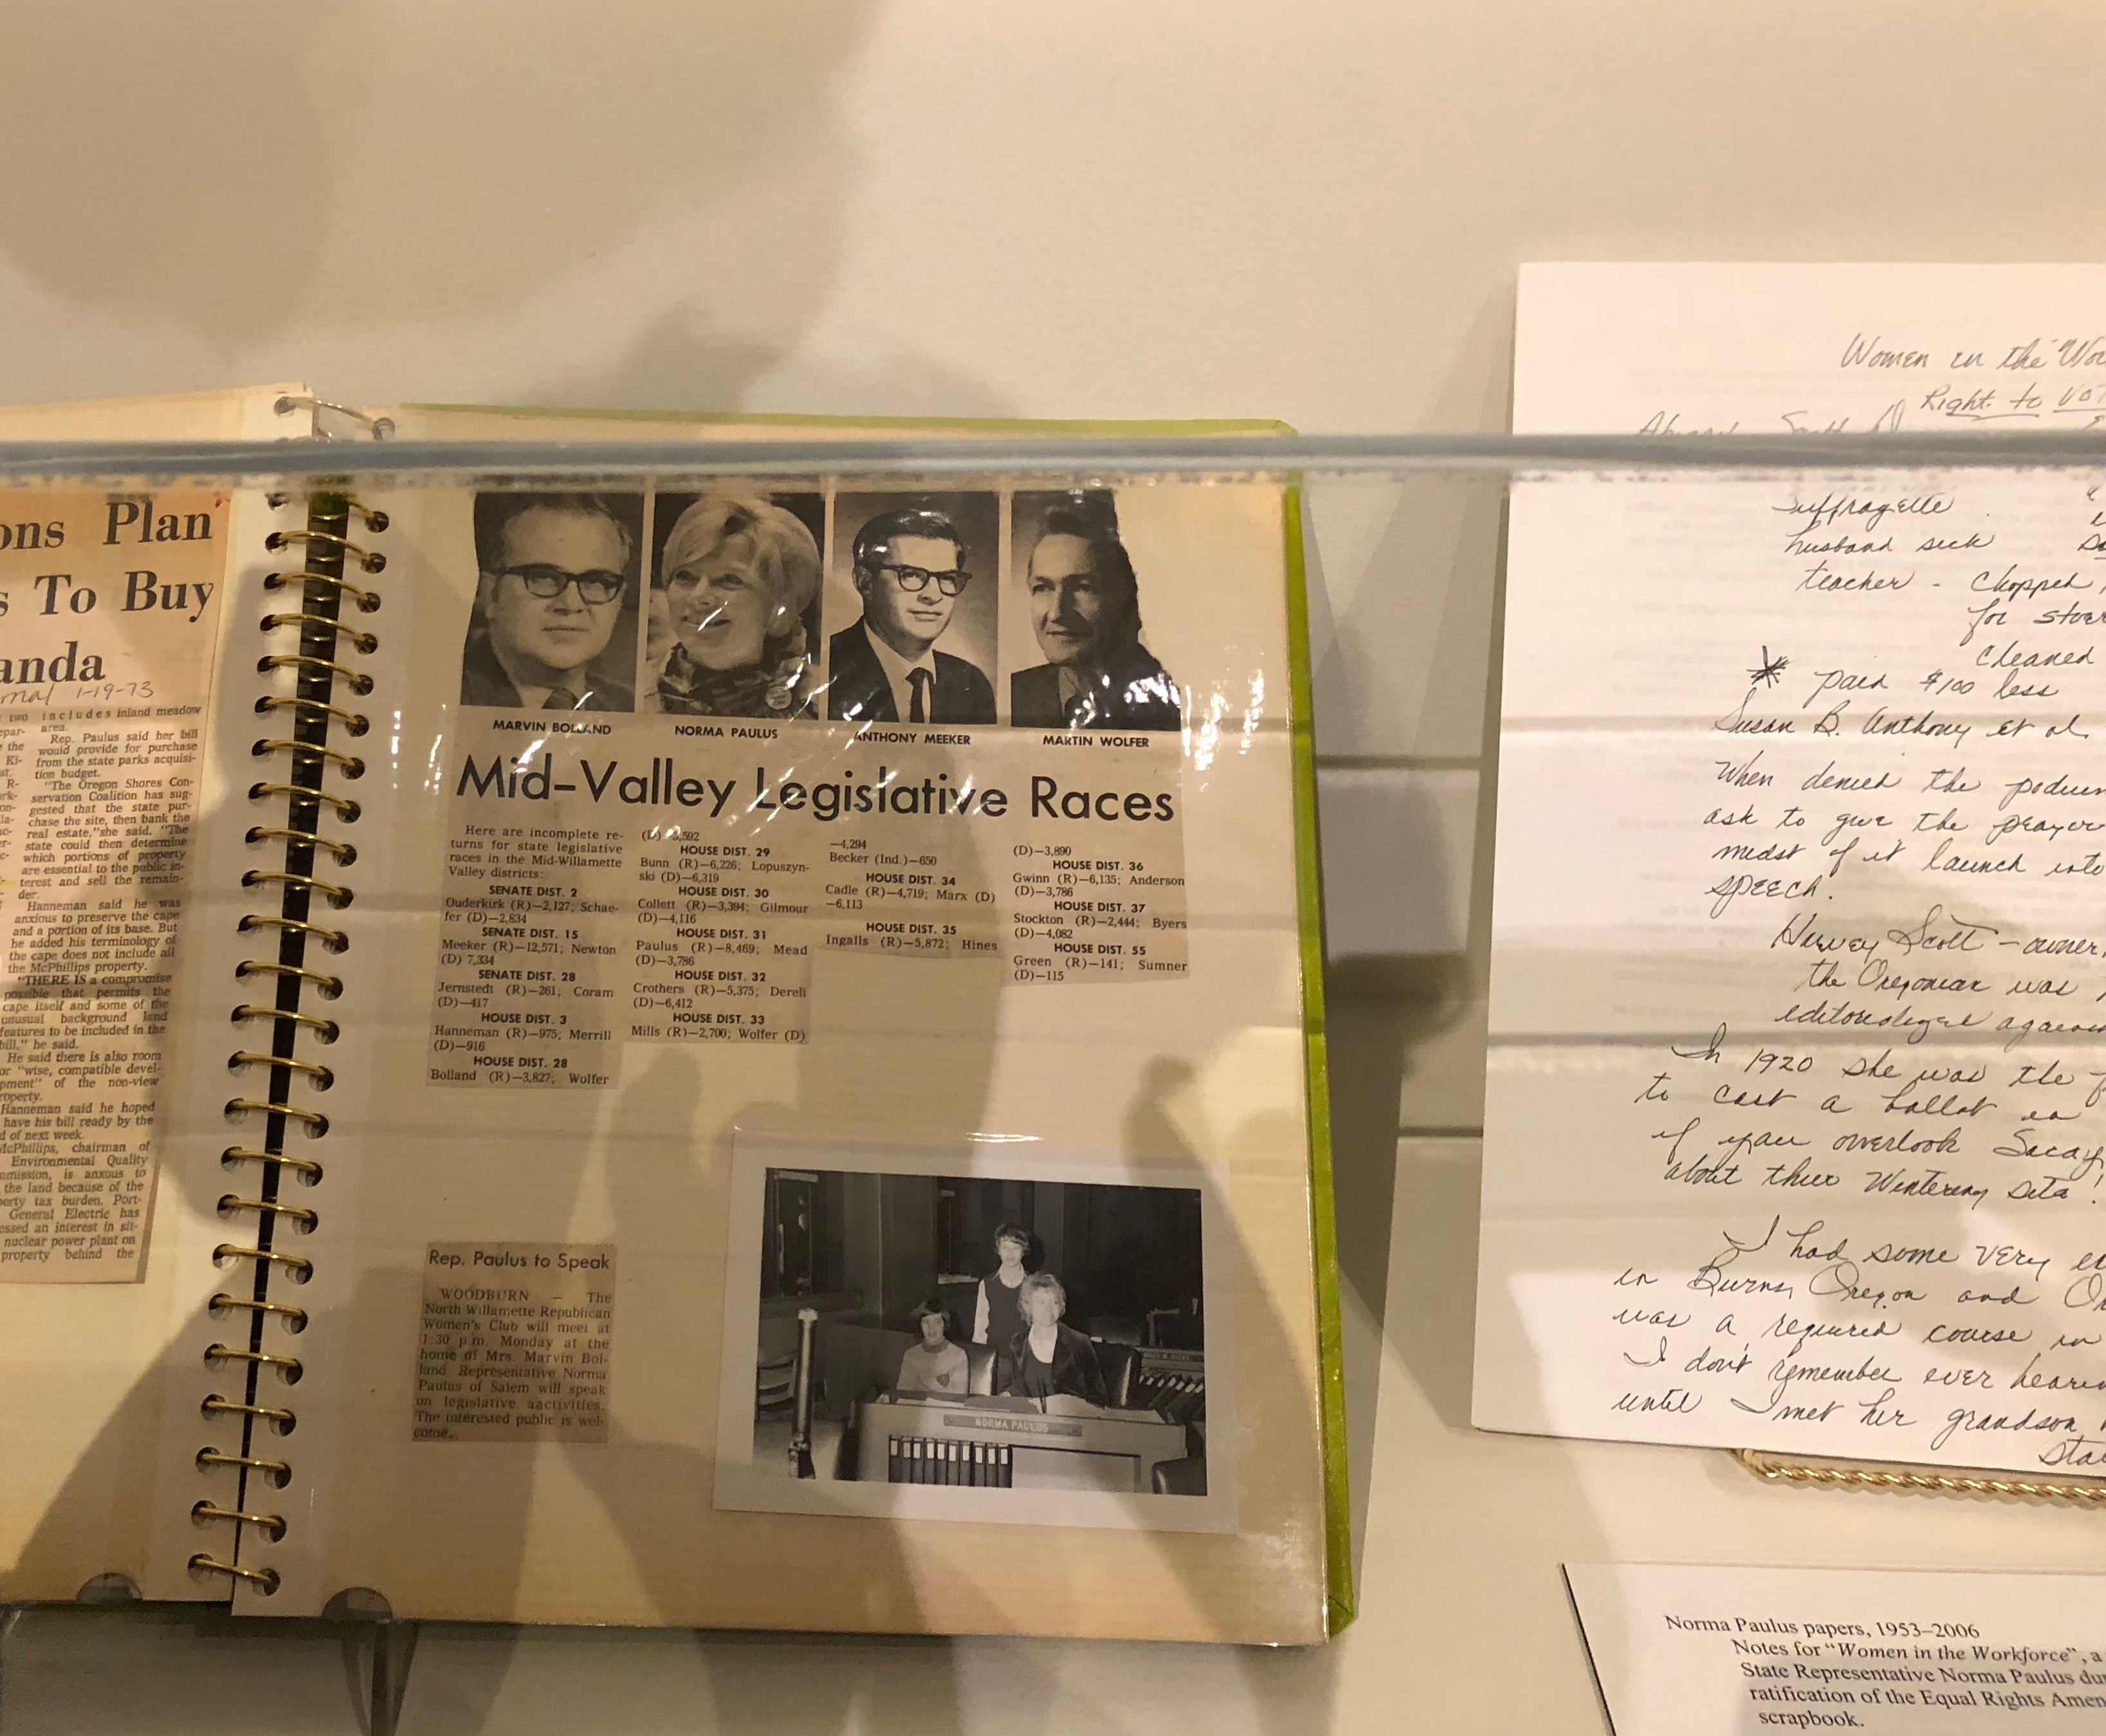 ons Plan
s To Buy
anda
1-19-73
two includes inland meadow
area.
Rep. Paulus said her bill
would provide for purchase
from the state parks acquisi-
tion budget.
"The Oregon Shores Con-
servation Coalition has sug-
gested that the state pur-
chase the site, then bank the
real estate," she said. "The
state could then determine
which portions of property
are essential to the public in-
terest and sell the remain-
der.
Hanneman said he was
anxious to preserve the cape
and a portion of its base. But
he added his terminology of
the cape does not include all
the McPhillips property.
"THERE IS a compromise
possible that permits the
cape itself and some of the
unusual background land
features to be included in the
bill," he said.
He said there is also room
or "wise, compatible devel-
pment" of the non-view
roperty.
Hanneman said he hoped
have his bill ready by the
d of next week.
McPhillips, chairman of
Environmental Quality
mmission, is anxous to
the land because of the
perty tax burden. Port-
General Electric has
essed an interest in sit-
nuclear power plant on
property behind the
MARVIN BOLLAND
NORMA PAULUS
ANTHONY MEEKER
MARTIN WOLFER
Mid-Valley Legislative Races
Here are incomplete re-
turns for state legislative
races in the Mid-Willamette
Valley districts:
SENATE DIST. 2
Ouderkirk (R)—2,127; Schae-
fer (D)—2,834
SENATE DIST. 15
Meeker (R)—12,571; Newton
(D) 7,334
SENATE DIST. 28
Jernstedt (R)—261; Coram
(D)—417
HOUSE DIST. 3
Hanneman (R)—975; Merrill
(D)—916
HOUSE DIST. 28
Bolland (R)—3,827; Wolfer
(D)—3,592
HOUSE DIST. 29
Bunn (R)—6,226; Lopuszyn-
ski (D)—6,319
HOUSE DIST. 30
Collett (R)—3,394; Gilmour
(D)—4,116
HOUSE DIST. 31
Paulus (R)—8,469; Mead
(D)—3,786
HOUSE DIST. 32
Crothers (R)—5,375; Dereli
(D)—6,412
HOUSE DIST. 33
Mills (R)—2,700; Wolfer (D)
—4,294
Becker (Ind.)—650
HOUSE DIST. 34
Cadle (R)—4,719; Marx (D)
—6,113
HOUSE DIST. 35
Ingalls (R)—5,872; Hines
(D)—3,890
HOUSE DIST. 36
Gwinn (R)—6,135; Anderson
(D)—3,786
HOUSE DIST. 37
Stockton (R)—2,444; Byers
(D)—4,082
HOUSE DIST. 55
Green (R)—141; Sumner
(D)—115
Rep. Paulus to Speak
WOODBURN — The
North Willamette Republican
Women's Club will meet at
1:30 p.m. Monday at the
home of Mrs. Marvin Bol-
land. Representative Norma
Paulus of Salem will speak
on legislative aactivities.
The interested public is wel-
come.
NORMA PAULUS
Women in the "Wor
Right to VOT
Suffragette
husband sick
teacher - chopped
for stov
cleaned
* paid $100 less
Susan B. Anthony et al
When denied the podium
ask to give the prayer
midst of it launch into
SPEECH.
Harvey Scott - owner,
the Oregonian was
editorialized against
In 1920 she was the f
to cast a ballot in
if you overlook Sacaj
about their Wintering site!
I had some very
in Burns, Oregon and Or
was a required course in
I don't remember ever hearin
until I met her grandson
Sta
Norma Paulus papers, 1953–2006
Notes for "Women in the Workforce", a
State Representative Norma Paulus du
ratification of the Equal Rights Amen
scrapbook.